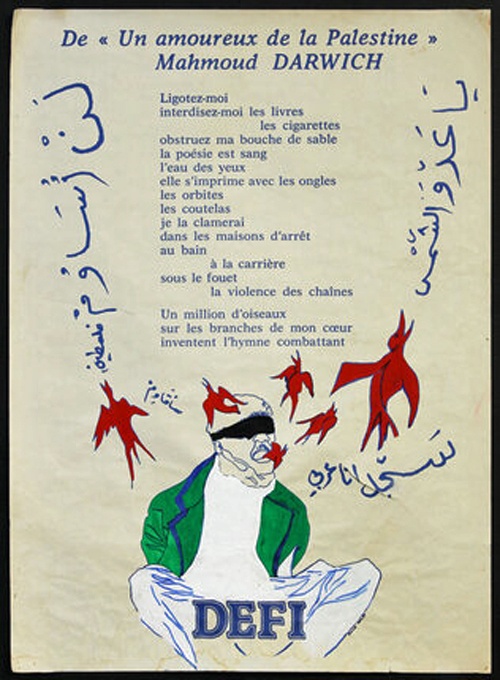 De « Un amoureux de la Palestine »
Mahmoud DARWICH
Ligotez-moi
interdisez-moi les livres
les cigarettes
obstruez ma bouche de sable
la poésie est sang
l'eau des yeux
elle s'imprime avec les ongles
les orbites
les coutelas
je la clamerai
dans les maisons d'arrêt
au bain
à la carrière
sous le fouet
la violence des chaînes
Un million d'oiseaux
sur les branches de mon cœur
inventent l'hymne combattant
يَا عَدُوَّ الشَّمْس
لَنْ أُسَاوِمْ
فلسطين
سنقاوم
سَجِّل انا عربي
DEFI